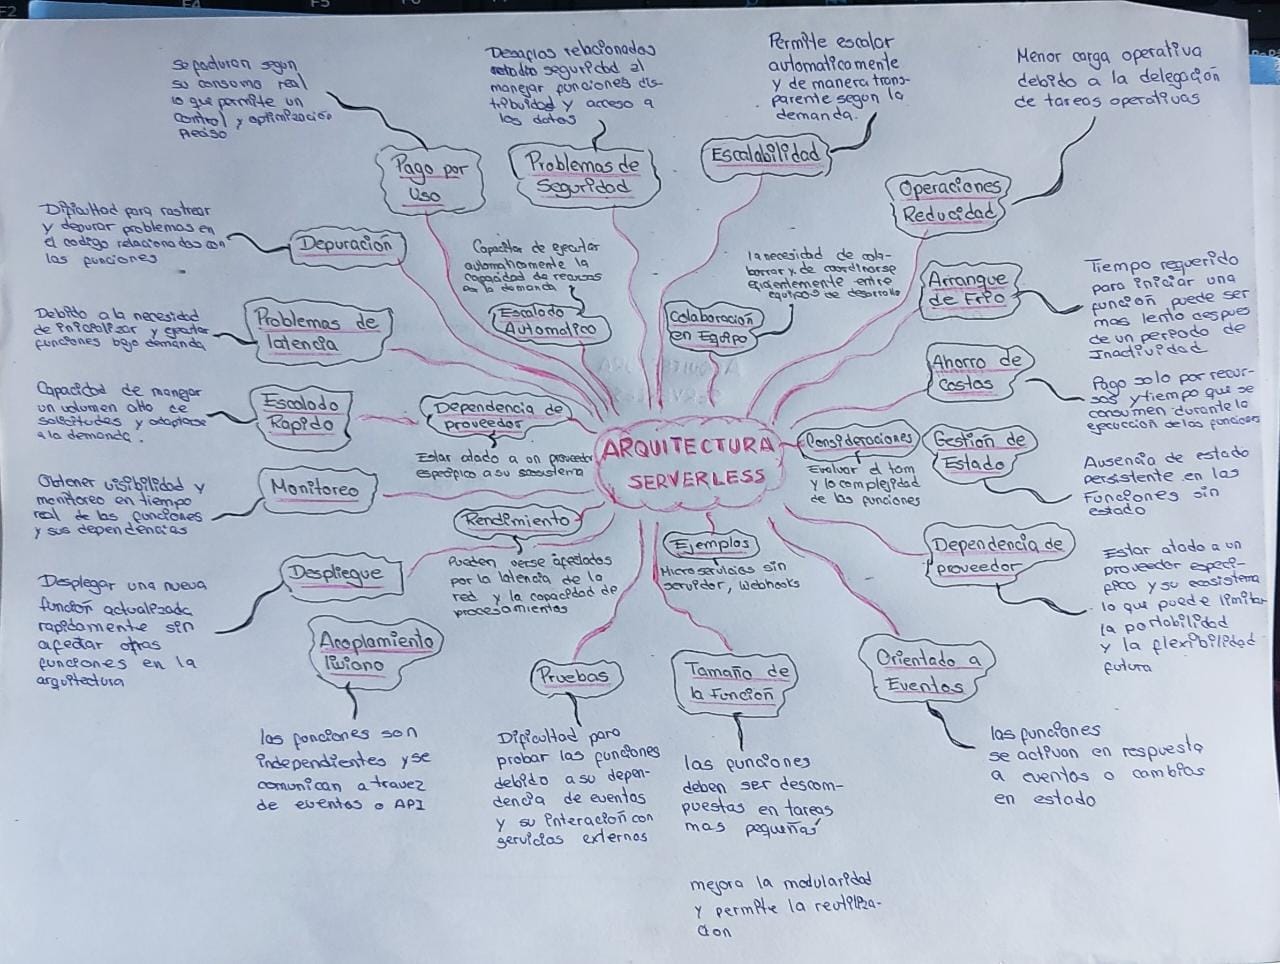 F2
F4
F5
ARQUITECTURA
SERVERLESS
Pago por
Uso
Se facturan segun
su consumo real
lo que permite un
control y optimización
Preciso
Problemas de
Seguridad
Desafios relacionados
seguridad al
manejar funciones dis-
tribuidad y acceso a
los datos
Escalabilidad
Permite escalar
automaticamente
y de manera trans-
parente segun la
demanda.
Operaciones
Reducidad
Menor carga operativa
debido a la delegación
de tareas operativas
Depuración
Dificultad para rastrear
y depurar problemas en
el codigo relacionados con
las funciones
Escalado
Automatico
de ejecutar
automaticamente la
capacidad de recursos
la demanda
Colaboración
en Equipo
la necesidad de cola-
borrar y de coordinarse
eficientemente entre
equipos de desarrollo
Arranque
de Frio
Tiempo requerido
para iniciar una
función puede ser
mas lento despues
de un periodo de
Inactividad
Problemas de
latencia
Debido a la necesidad
de inicializar y ejecutar
funciones bajo demanda
Ahorro de
Costos
Pago solo por recur-
sos y tiempo que se
consumen durante la
ejecución de las funciones
Escalado
Rapido
Capacidad de manejar
un volumen alto de
solicitudes y adaptarse
a la demanda.
Dependencia de
proveedor
Estar atado a un proveedor
especifico a su ecosistema
Consideraciones
Evaluar el tam
y lo complejidad
de las funciones
Gestión de
Estado
Ausencia de estado
persistente en las
Funciones sin
estado
Monitoreo
Obtener visibilidad y
monitoreo en tiempo
real de las funciones
y sus dependencias
Rendimiento
Pueden verse afectados
por la latencia de la
red y la capacidad de
procesamientos
Ejemplos
Microservicios sin
servidor, webhooks
Dependencia de
proveedor
Estar atado a un
proveedor especi-
fico y su ecosistema
lo que puede limitar
la portabilidad
y la flexibilidad
futura
Despliegue
Desplegar una nueva
función actualizada
rapidamente sin
afectar otras
funciones en la
arquitectura
Acoplamiento
liviano
las funciones son
independientes y se
comunican a travez
de eventos o API
Pruebas
Dificultad para
probar las funciones
debido a su depen-
dencia de eventos
y su interación con
servicios externos
Tamaño de
la función
las funciones
deben ser descom-
puestas en tareas
mas pequeñas
mejora la modularidad
y permite la reutiliza-
cion
Orientado a
Eventos
las funciones
se activan en respuesta
a eventos o cambios
en estado